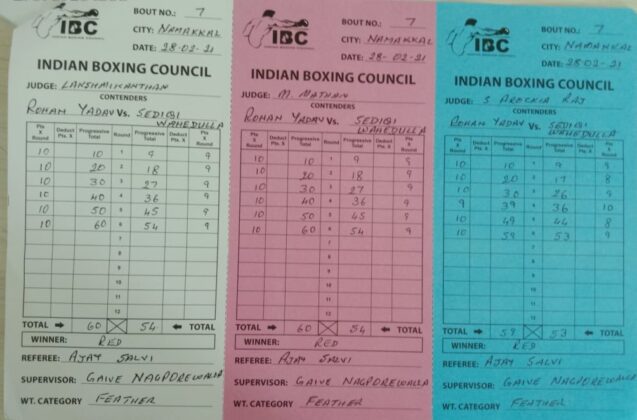 IBC
INDIAN BOXING COUNCIL
BOUT NO.: 7
CITY: NAMAKKAL
DATE: 28-02-21
INDIAN BOXING COUNCIL
JUDGE: LAKSHMIKANTHAN
CONTENDERS
ROHAN YADAV Vs. SEDIQI WAHEDULLA
Pts X Round Deduct Pts. X Progressive Total Round Progressive Total Deduct Pts. X Pts X Round
10 10 1 9 9
10 20 2 18 9
10 30 3 27 9
10 40 4 36 9
10 50 5 45 9
10 60 6 54 9
7
8
9
10
11
12
TOTAL 60 54 TOTAL
WINNER: RED
REFEREE: AJAY SALVI
SUPERVISOR: GAIVE NAGPOREWALLA
WT. CATEGORY FEATHER
IBC
INDIAN BOXING COUNCIL
BOUT NO.: 7
CITY: NAMAKKAL
DATE: 28-02-21
INDIAN BOXING COUNCIL
JUDGE: M. MATHAN
CONTENDERS
ROHAN YADAV Vs. SEDIQI WAHEDULLA
Pts X Round Deduct Pts. X Progressive Total Round Progressive Total Deduct Pts. X Pts X Round
10 10 1 9 9
10 20 2 18 9
10 30 3 27 9
10 40 4 36 9
10 50 5 45 9
10 60 6 54 9
7
8
9
10
11
12
TOTAL 60 54 TOTAL
WINNER: RED
REFEREE: AJAY SALVI
SUPERVISOR: GAIVE NAGPOREWALLA
WT. CATEGORY FEATHER
IBC
BOUT NO.: 7
CITY: NAMAKKAL
DATE: 28-02-21
INDIAN BOXING COUNCIL
JUDGE: S AROCKIA RAJ
CONTENDERS
ROHAN YADAV Vs. SEDIQI WAHEDULLA
Pts X Round Deduct Pts. X Progressive Total Round Progressive Total Deduct Pts. X Pts X Round
10 10 1 9 9
10 20 2 17 8
10 30 3 26 9
9 39 4 36 10
10 49 5 44 8
10 59 6 53 9
7
8
9
10
11
12
TOTAL 59 53 TOTAL
WINNER: RED
REFEREE: AJAY SALVI
SUPERVISOR: GAIVE NAGPOREWALLA
WT. CATEGORY FEATHER